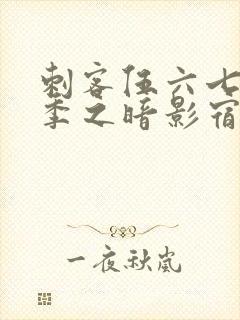 刺客伍六七
季之暗影宿
一夜秋岚